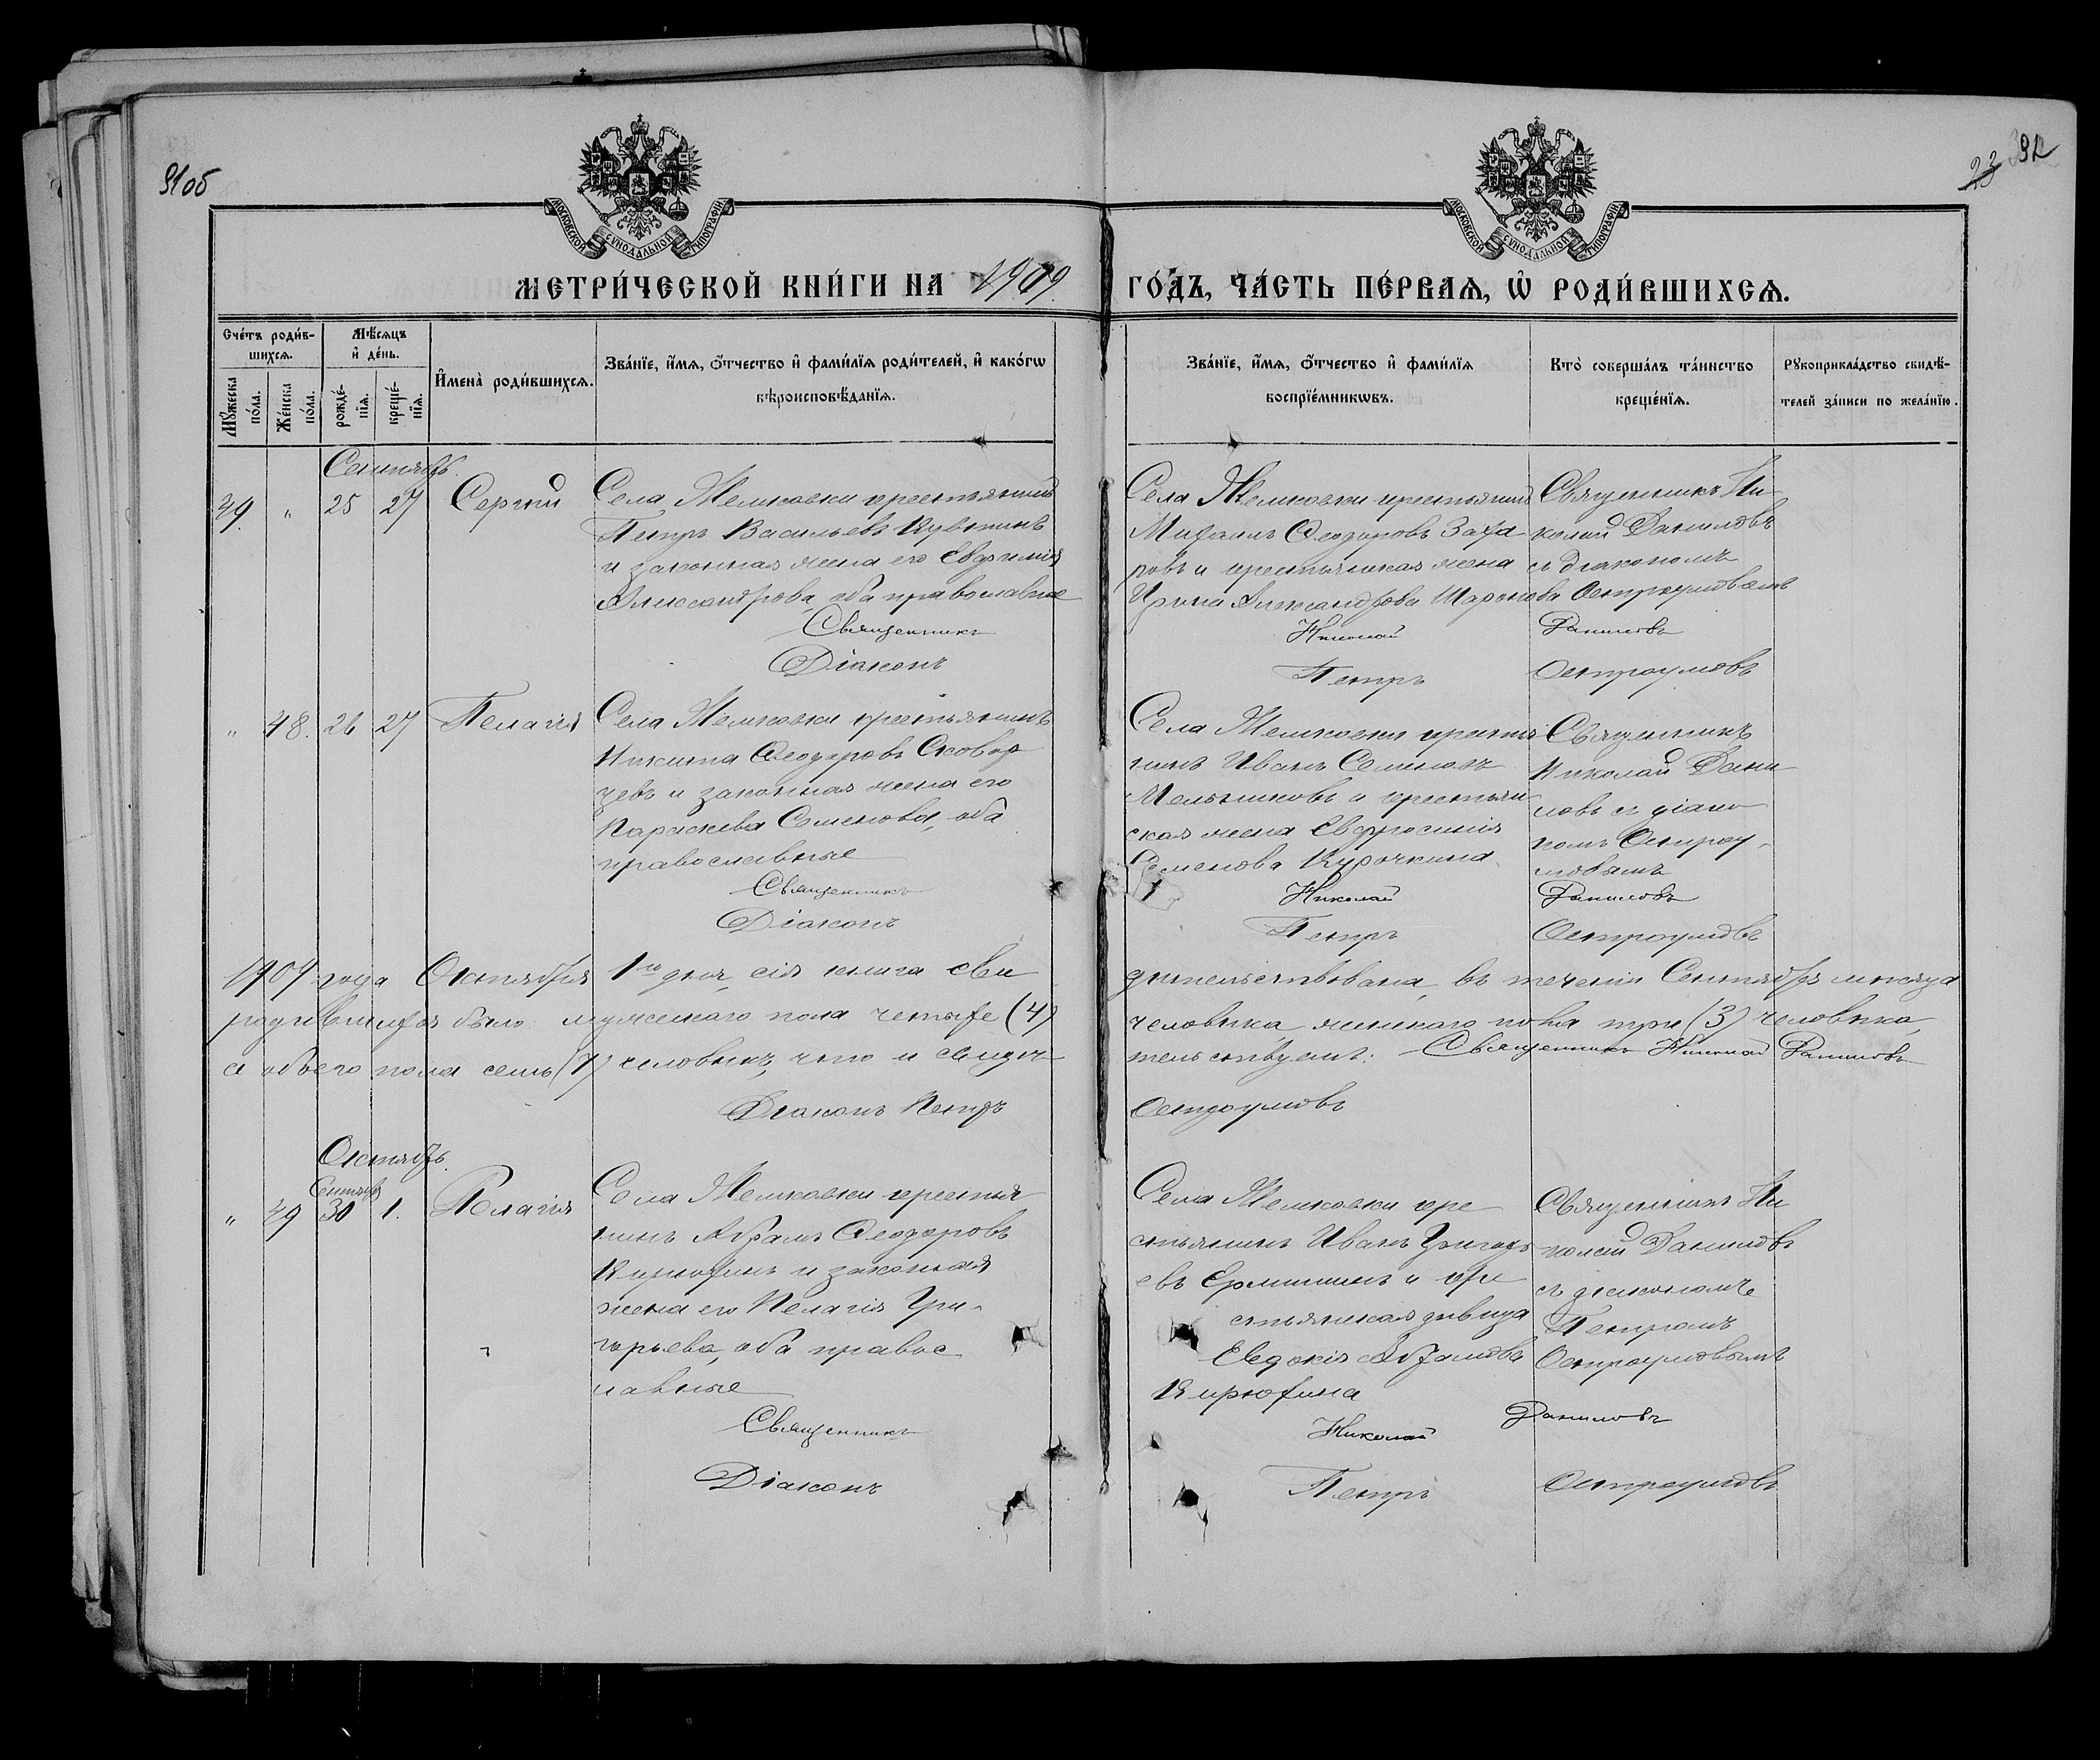 91об
23 92
МОСКОВСКОЙ СѴНОДАЛЬНОЙ ТИПОГРАФІИ
МОСКОВСКОЙ СѴНОДАЛЬНОЙ ТИПОГРАФІИ
МЕТРИ́ЧЕСКОЙ КНИ́ГИ НА 1909 ГО́ДЪ, ЧА́СТЬ ПЕ́РВАѦ, Ѡ҆ РОДИ́ВШИХСѦ.
Сче́тъ роди́в-
шихсѧ.
Мꙋ́жеска
по́ла.
Же́нска
по́ла.
Мѣ́сѧцъ
и҆ де́нь.
рожде́-
нїѧ.
креще́-
нїѧ.
И҆мена̀ роди́вшихсѧ.
Зва́нїе, и҆́мѧ, ѻ҆́тчество и҆ фами́лїѧ роди́телей, и҆ како́гѡ
вѣроисповѣ́данїѧ.
Зва́нїе, и҆́мѧ, ѻ҆́тчество и҆ фами́лїѧ
воспрїе́мникѡвъ.
Кто̀ соверша́лъ та́инство
креще́нїѧ.
Рꙋкоприкла́дство свидѣ́-
телей за́писи по жела́нїю.
Сентябрь.
39. „ 25 27 Сергий
Села Жемковки крестьянинъ
Петръ Васильевъ
и законная жена его
Александрова, оба православные
Священникъ
Діаконъ
Села Жемковки крестьянинъ
Михаилъ Ѳеодоровъ Заха
ровъ и крестьянская жена
Ирина Александрова Шаронова
Николай
Петръ
Священникъ Ни
колай Даниловъ
съ діакономъ
Остроумовымъ
Даниловъ
Остроумовъ
„ 48. 26 27 Пелагія
Села Жемковки крестьянинъ
Никита Ѳеодоровъ Сквор
цевъ и законная жена его
Параскева Семенова, оба
православные
Священникъ
Діаконъ
Села Жемковки крестья
нинъ Иванъ Семеновъ
Мельниковъ и крестьян
ская жена Евфросинія
Семенова Курочкина
Николай
Петръ
Священникъ
Николай Дани
ловъ съ діако
номъ Остроу
мовымъ
Даниловъ
Остроумовъ
1909 года Октября 1го дня, сія книга сви дѣтельствована, въ теченіи Сентября мѣсяца
родившихся было: мужескаго пола четыре (4) человѣка, женскаго пола три (3) человѣка,
а обоего пола семь (7) человѣкъ, что и свидѣ тельствуемъ: Священникъ Николай Даниловъ
Діаконъ Петръ Остроумовъ
Октябрь.
Сентября
„ 49 30 1. Пелагія
Села Жемковки крестья
нинъ Абрамъ Ѳеодоровъ
Кирюхинъ и законная
жена его Пелагія Гри-
горьева, оба правос
лавные
Священникъ
Діаконъ
Села Жемковки кре
стьянинъ Иванъ Григорь
евъ Ермишинъ и кре
стьянская дѣвица
Евдокія Абрамова
Кирюхина
Николай
Петръ
Священникъ Ни
колай Даниловъ
съ діакономъ
Петромъ
Остроумовымъ
Даниловъ
Остроумовъ